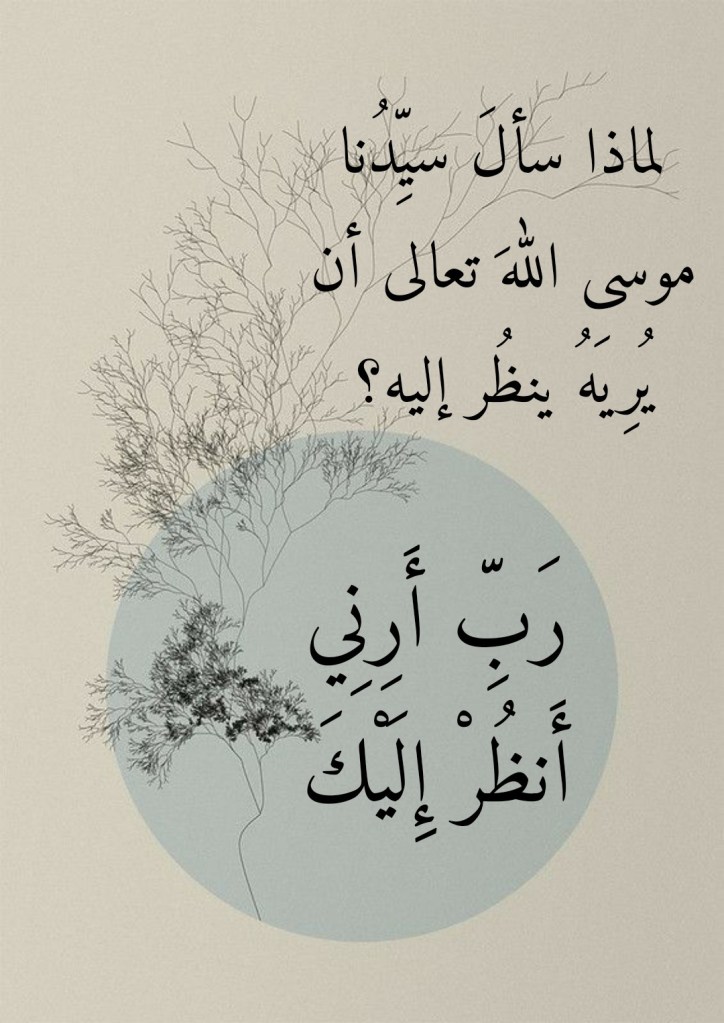 لماذا سألَ سيِّدُنا
موسى اللهَ تعالى أن
يُرِيَهُ ينظُر إليه؟
رَبِّ أَرِنِي
أَنظُرْ إِلَيْكَ